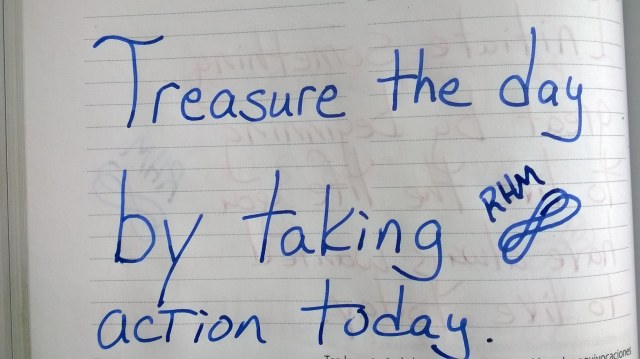 Treasure the day
by taking RHM
action today.